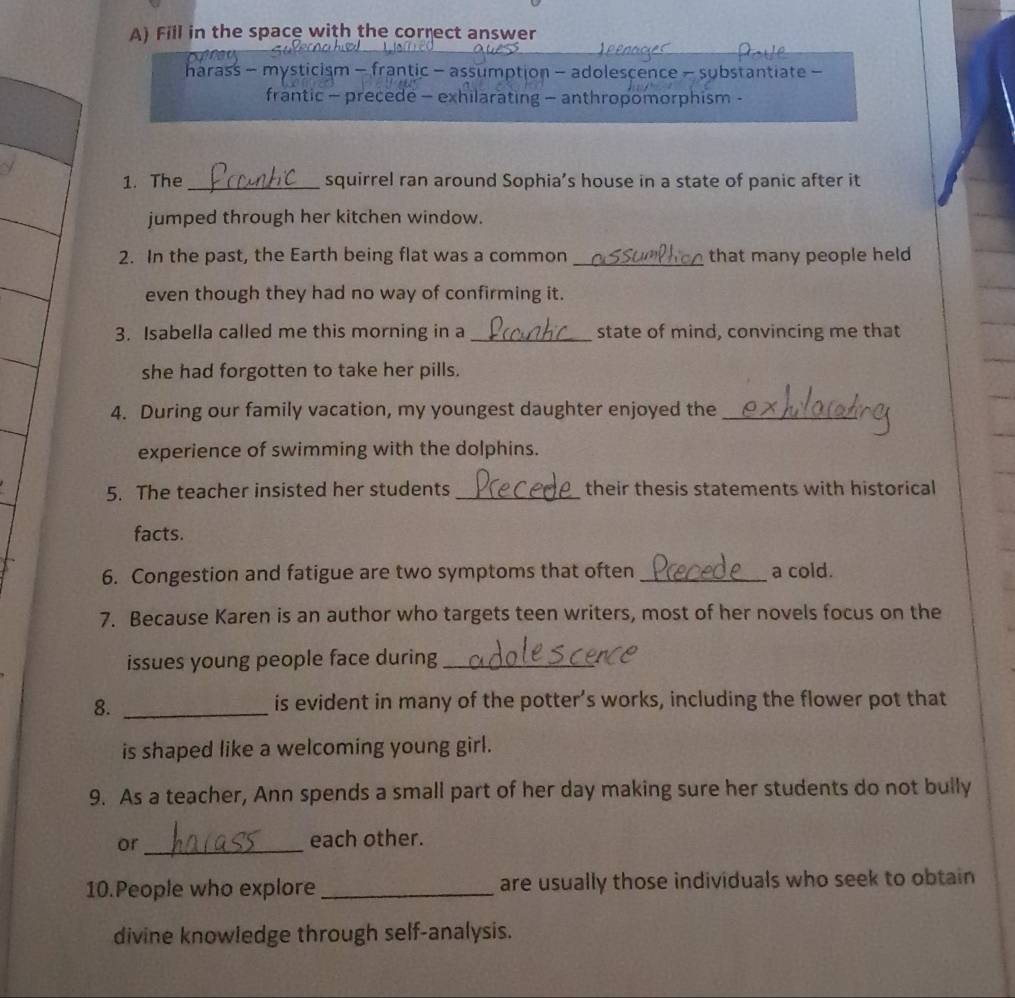 A) Fill in the space with the correct answer
annoy supernatural worried guess teenager Prove
harass – mysticism – frantic – assumption – adolescence – substantiate –
frantic – precede – exhilarating – anthropomorphism -
1. The Frantic squirrel ran around Sophia's house in a state of panic after it
jumped through her kitchen window.
2. In the past, the Earth being flat was a common assumption that many people held
even though they had no way of confirming it.
3. Isabella called me this morning in a Frantic state of mind, convincing me that
she had forgotten to take her pills.
4. During our family vacation, my youngest daughter enjoyed the exhilarating
experience of swimming with the dolphins.
5. The teacher insisted her students Precede their thesis statements with historical
facts.
6. Congestion and fatigue are two symptoms that often Precede a cold.
7. Because Karen is an author who targets teen writers, most of her novels focus on the
issues young people face during adolescence
8. ____________ is evident in many of the potter's works, including the flower pot that
is shaped like a welcoming young girl.
9. As a teacher, Ann spends a small part of her day making sure her students do not bully
or harass each other.
10.People who explore ______________ are usually those individuals who seek to obtain
divine knowledge through self-analysis.